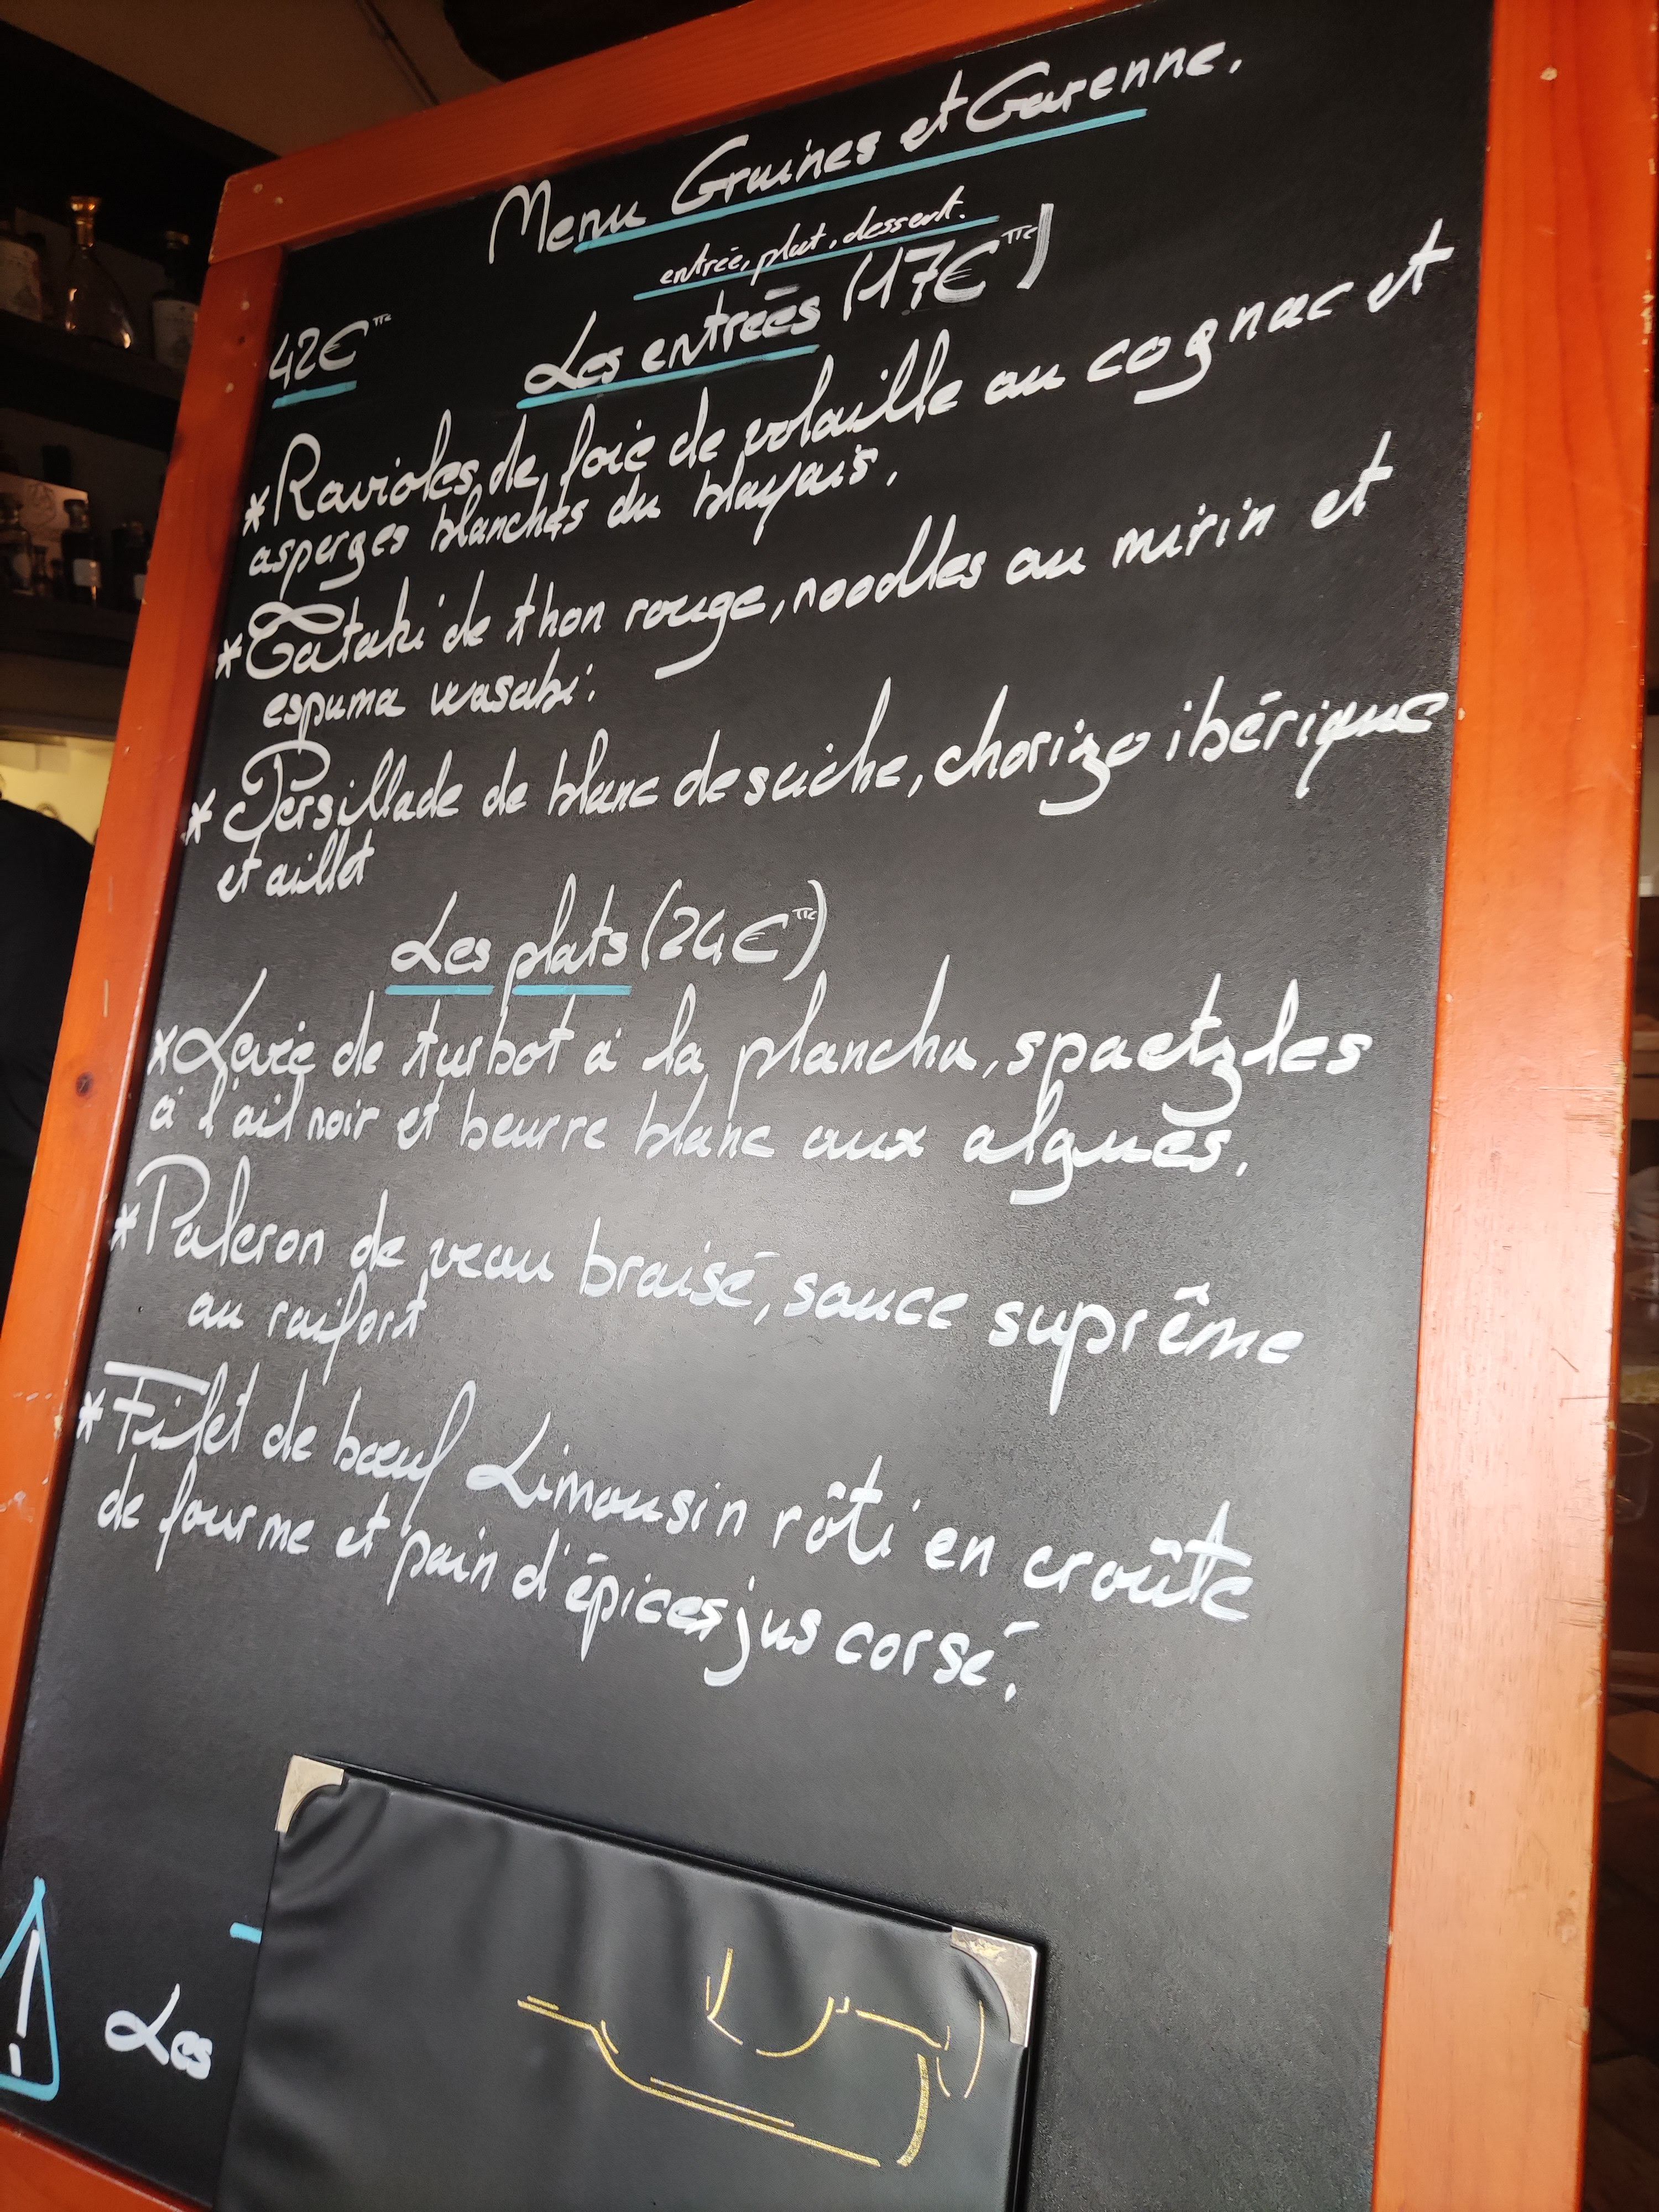 Menu Graines et Garenne.
entrée, plat, dessert.
42€ TTC
Les entrées (17€ TTC)
*Ravioles de foie de volaille au cognac et
asperges blanches du blayais.
*Tataki de thon rouge, noodles au mirin et
espuma wasabi.
*Persillade de blanc de seiche, chorizo ibérique
et aillet
Les plats (24€ TTC)
*Levée de turbot à la plancha, spaetzles
à l'ail noir et beurre blanc aux algues.
*Paleron de veau braisé, sauce suprême
au raifort
*Filet de bœuf Limousin rôti en croûte
de fourme et pain d'épices jus corsé.
! Les